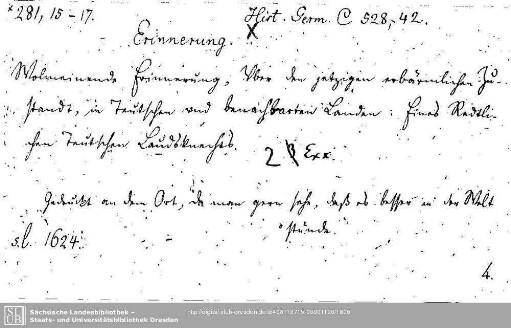 *281, 15-17.
Hist. Germ. C 528,-42.
X
Erinnerung.
Wolmeinende Erinnerung, Uber den jetzigen erbärmlichen Zu-
standt, in Teutschen und benachbarten Landen: Eines Redtli-
chen Teutschen Landsknechts.
2 Exx.
Gedruckt an dem Ort, da man gern sehe, daß es besser in der Welt
stünde.
s.l. 1624.
4.
SLUB
Sächsische Landesbibliothek –
Staats- und Universitätsbibliothek Dresden